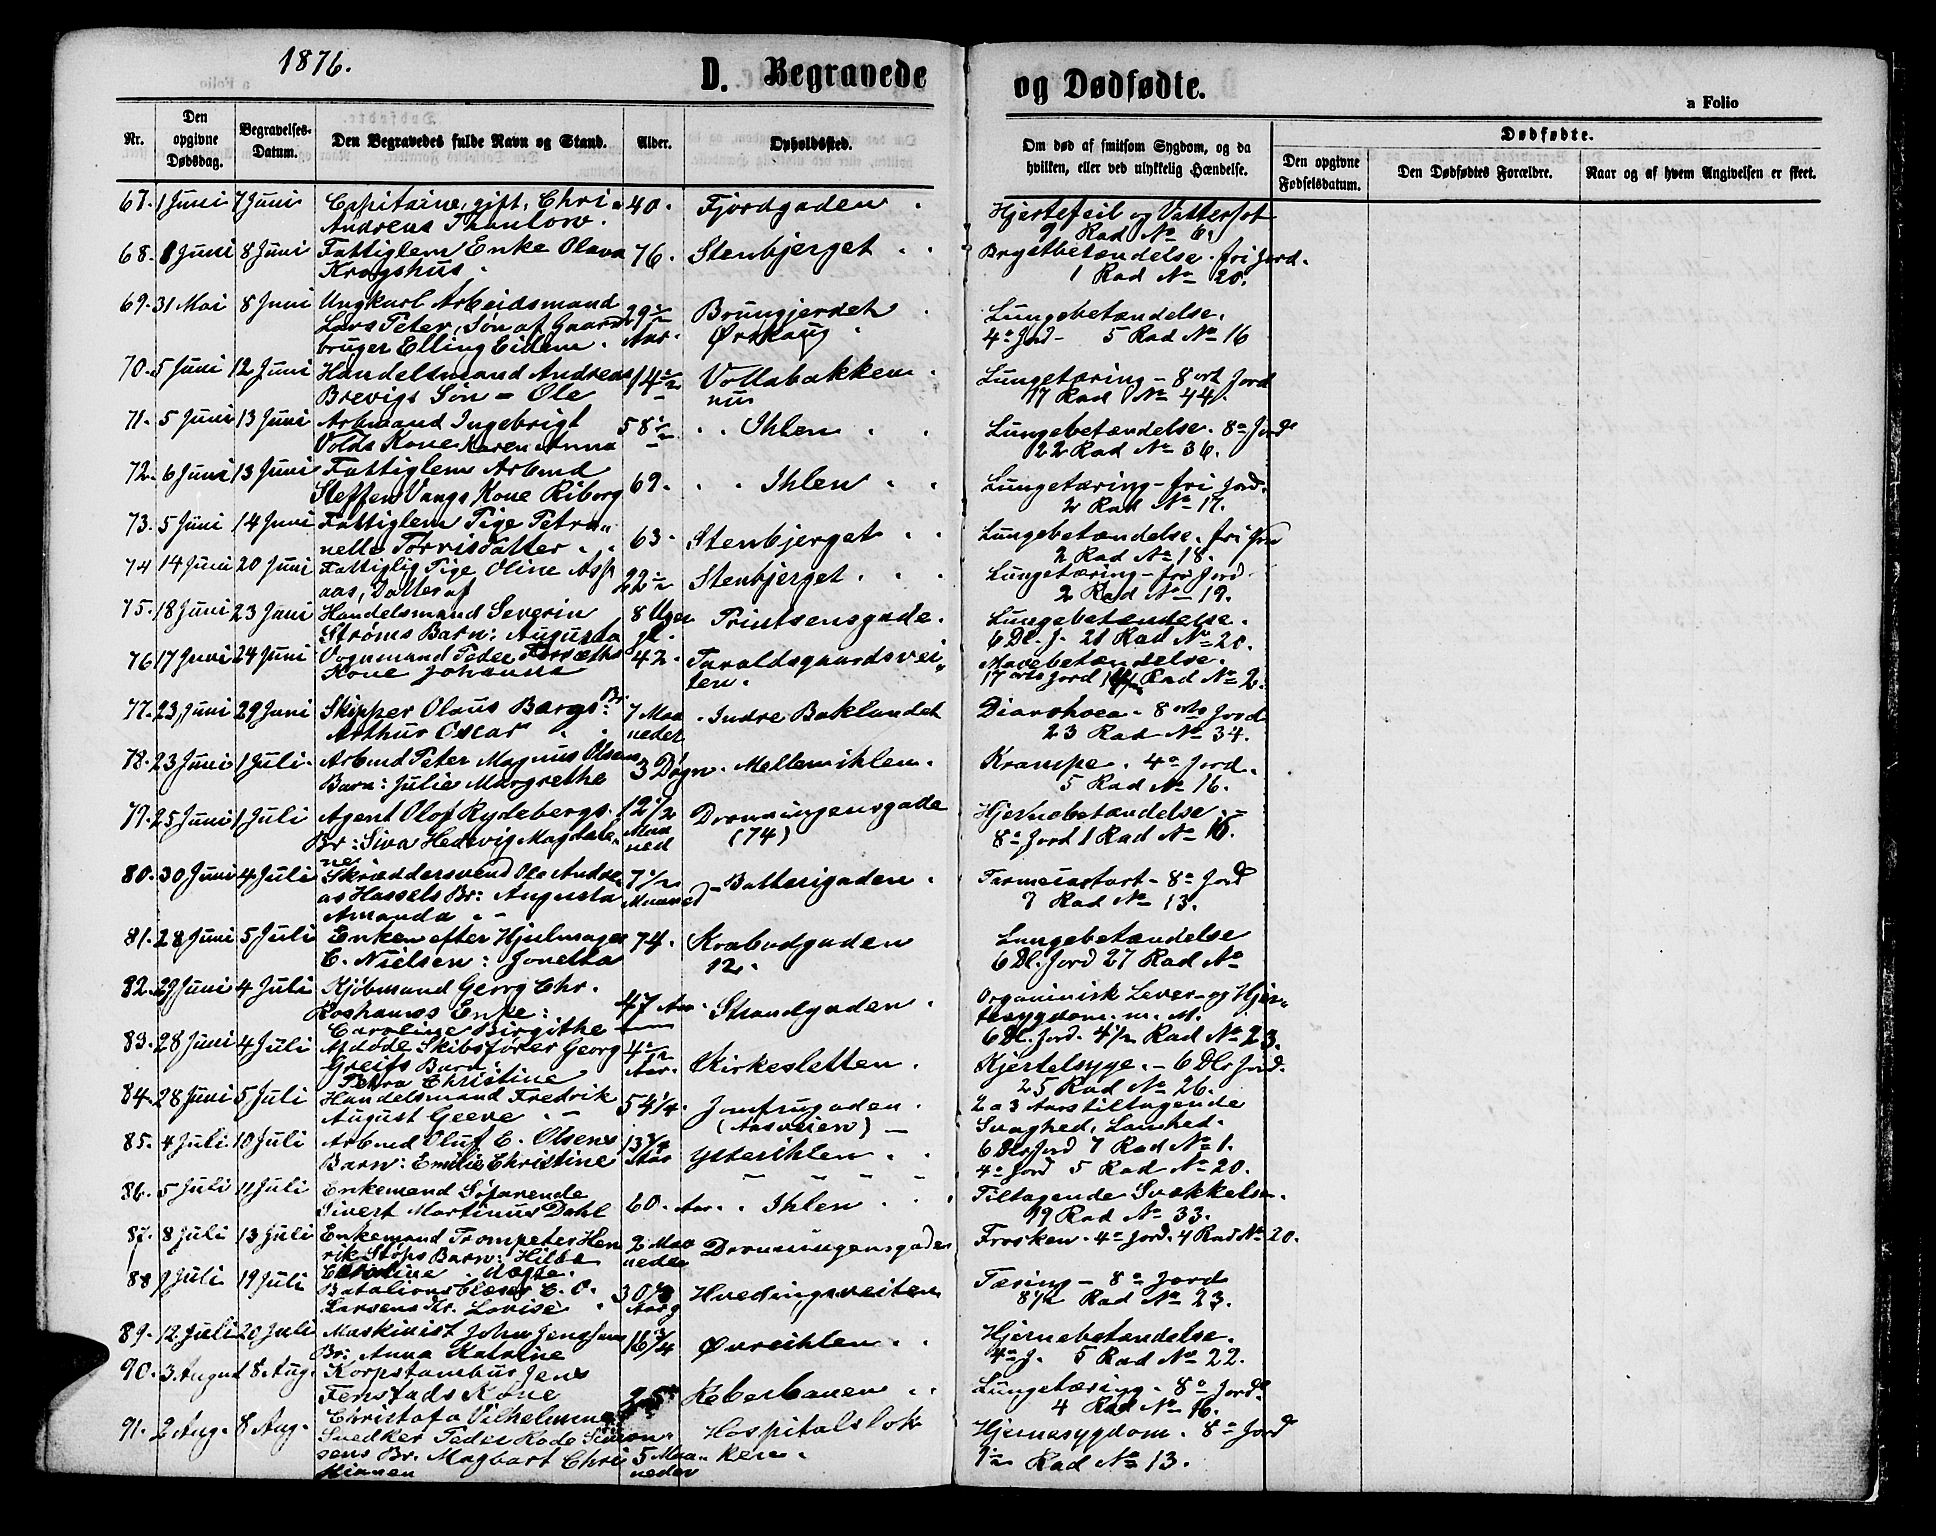 1876.
D. Begravede og Dødfødte.
a Folio
Nr.
Den opgivne Dødsdag.
Begravelses-Datum.
Den Begravedes fulde Navn og Stand.
Alder.
Opholdssted.
Om død af smitsom Sygdom, og da hvilken, eller ved ulykkelig Hændelse.
Dødfødte.
Den opgivne Fødselsdatum.
Den Dødfødtes Forældre.
Naar og af hvem Angivelsen er skeet.
67. 1 Juni 7 Juni Capitaine, gift, Chri 40. Fjordgaden Hjertefeil og Vattersot
Andreas Thaulow. 9 Rad No 6.
68. 1 Juni 8 Juni Fattiglem Enke Olava 76. Stenbjerget Brystbetændelse. fri Jord.
Krogshus. 1 Rad No 20.
69. 31 Mai 8 Juni Ungkarl Arbeidsmand 29 1/2 Aar. Brungjerdet Lungebetændelse.
Lars Peter, Søn af Gaard Ørskaug 4 o Jord - 5 Rad No 16
bruger Elling Eidem.
70. 5 Juni 12 Juni Handelsmand Andreas 14 1/2 Vollabakken Lungetæring - 8 ort Jord
Brevigs Søn - Ole 17 Rad No 44.
71. 5 Juni 13 Juni Arbmand Ingebrigt 58 1/2 Ihlen Lungebetændelse. 8 o Jord
Volds Kone Karen Anna 22 Rad No 36.
72. 6 Juni 13 Juni Fattiglem Arbmd 69. Ihlen Lungetæring - fri Jord.
Steffen Vangs Kone Riborg 2 Rad No 17.
73. 5 Juni 14 Juni Fattiglem Pige Petro- 63. Stenbjerget Lungebetændelse. fri Jord
nelle Torrisdatter 2 Rad No 18.
74 14 Juni 20 Juni Fattiglig Pige Oline Asp 22 1/2 Stenbjerget Lungetæring - fri Jord.
aas, Datter af 2 Rad No 19.
75. 18 Juni 23 Juni Handelsmand Severin 8 Uger gl. Printsensgade. Lungebetændelse.
Strøms Barn: Augusta 6 Dl. J. 21 Rad No 20.
76 17 Juni 24 Juni Vognmand Peder 42. Taraldsgaardsvei- Mavebetændelse.
Kone Johanna ten. 17 orts Jord Rad No 2.
77. 23 Juni 29 Juni Skipper Olaus Bargs Br: 7 Maaneder Indre Baklandet Diarrhoea - 8 orts Jord
Arthur Oscar 23 Rad No 34.
78. 23 Juni 1 Juli. Arbmd Peter Magnus Olsens 3 Døgn. Mellemihlen. Krampe. 4 o Jord.
Barn: Julie Margrethe 5 Rad No 16.
79. 25 Juni 1 Juli Agent Olof Rydebergs. 12 1/2 Maaned Dronningensgade Hjernebetændelse.
Br: Siva Hedevig Magdale- (74) 8 o Jord 1 Rad No 16.
ne
80. 30 Juni 4 Juli Skræddersvend Ole Andre- 7 1/2 Maaned Batterigaden. 8 o Jord
as Hassels Br: Augusta 7 Rad No 13.
Amanda
81. 28 Juni 5 Juli Enken efter Hjulmager 74. Krabodgaden Lungebetændelse
C. Nielsen: Jonetta 12. 6 Dl. Jord 27 Rad No
82. 29 Juni 4 Juli Kjøbmand Georg Chr. 47 Aar. Strandgaden. Organinisk Lever- og Hjer-
Enke: tesygdom. m. M.
Caroline Birgithe 6 Dl. Jord. 4 1/2 Rad No 23.
83. 28 Juni 4 Juli Afdøde Skibsfører Georg 4 1/2 Aar. Kirkesletten. Kjertelsyge. - 6 Dlr Jord.
Greifs Barn 25 Rad No 26.
Petra Christine
84. 28 Juni 5 Juli Handelsmand Fredrik 54 1/4. Jomfrugaden. 2 a 3 Aars tiltagende
August Geeve (Aasveien) Svaghed, Lamhed.
6 Dlr Jord 7 Rad No 1.
85. 4 Juli 10 Juli Arbmd Oluf C. Olsens 13 3/4 Aar Ytterihlen 4 o Jord 5 Rad No 20.
Barn: Emilie Christine
86. 5 Juli 11 Juli Enkemand Søfarende 60. Aar. Ihlen Tiltagende Svækkelse.
Sivert Martinus Dahl 19 Rad No 33.
87. 8 Juli 13 Juli Enkemand Trompeter Hen 2 Maaneder Dronningensgaden Frosken. 4 o Jord. 4 Rad No 20.
rik Støps Barn: Hilba
Caroline
88 9 Juli 19 Juli Bataillons C. O. 30 Aar Hvedingsveiten Tæring - 8 o Jord
Larsens Kr. Lovise 8 1/2 Rad No 23.
89. 12 Juli 20 Juli Maskinist John 16 3/4 Øvreihlen Hjernebetændelse.
Br: Anna Katrine 4 o J. 5 Rad No 22.
90. 3 August 8 Aug. Korpstambur Jens 25 Reberbanen Lungetæring. 8 o Jord.
Fenstads Kone 4 Rad No 16.
Christofa Vilhelmine
91. 2 Aug. 8 Aug. Snedker Peder Rode Simon- 5 Maaneder Hospitalsløk Hjernesygdom. 8 o Jord
sens Br. Magbart Chri ken. 9 1/2 Rad No 13.